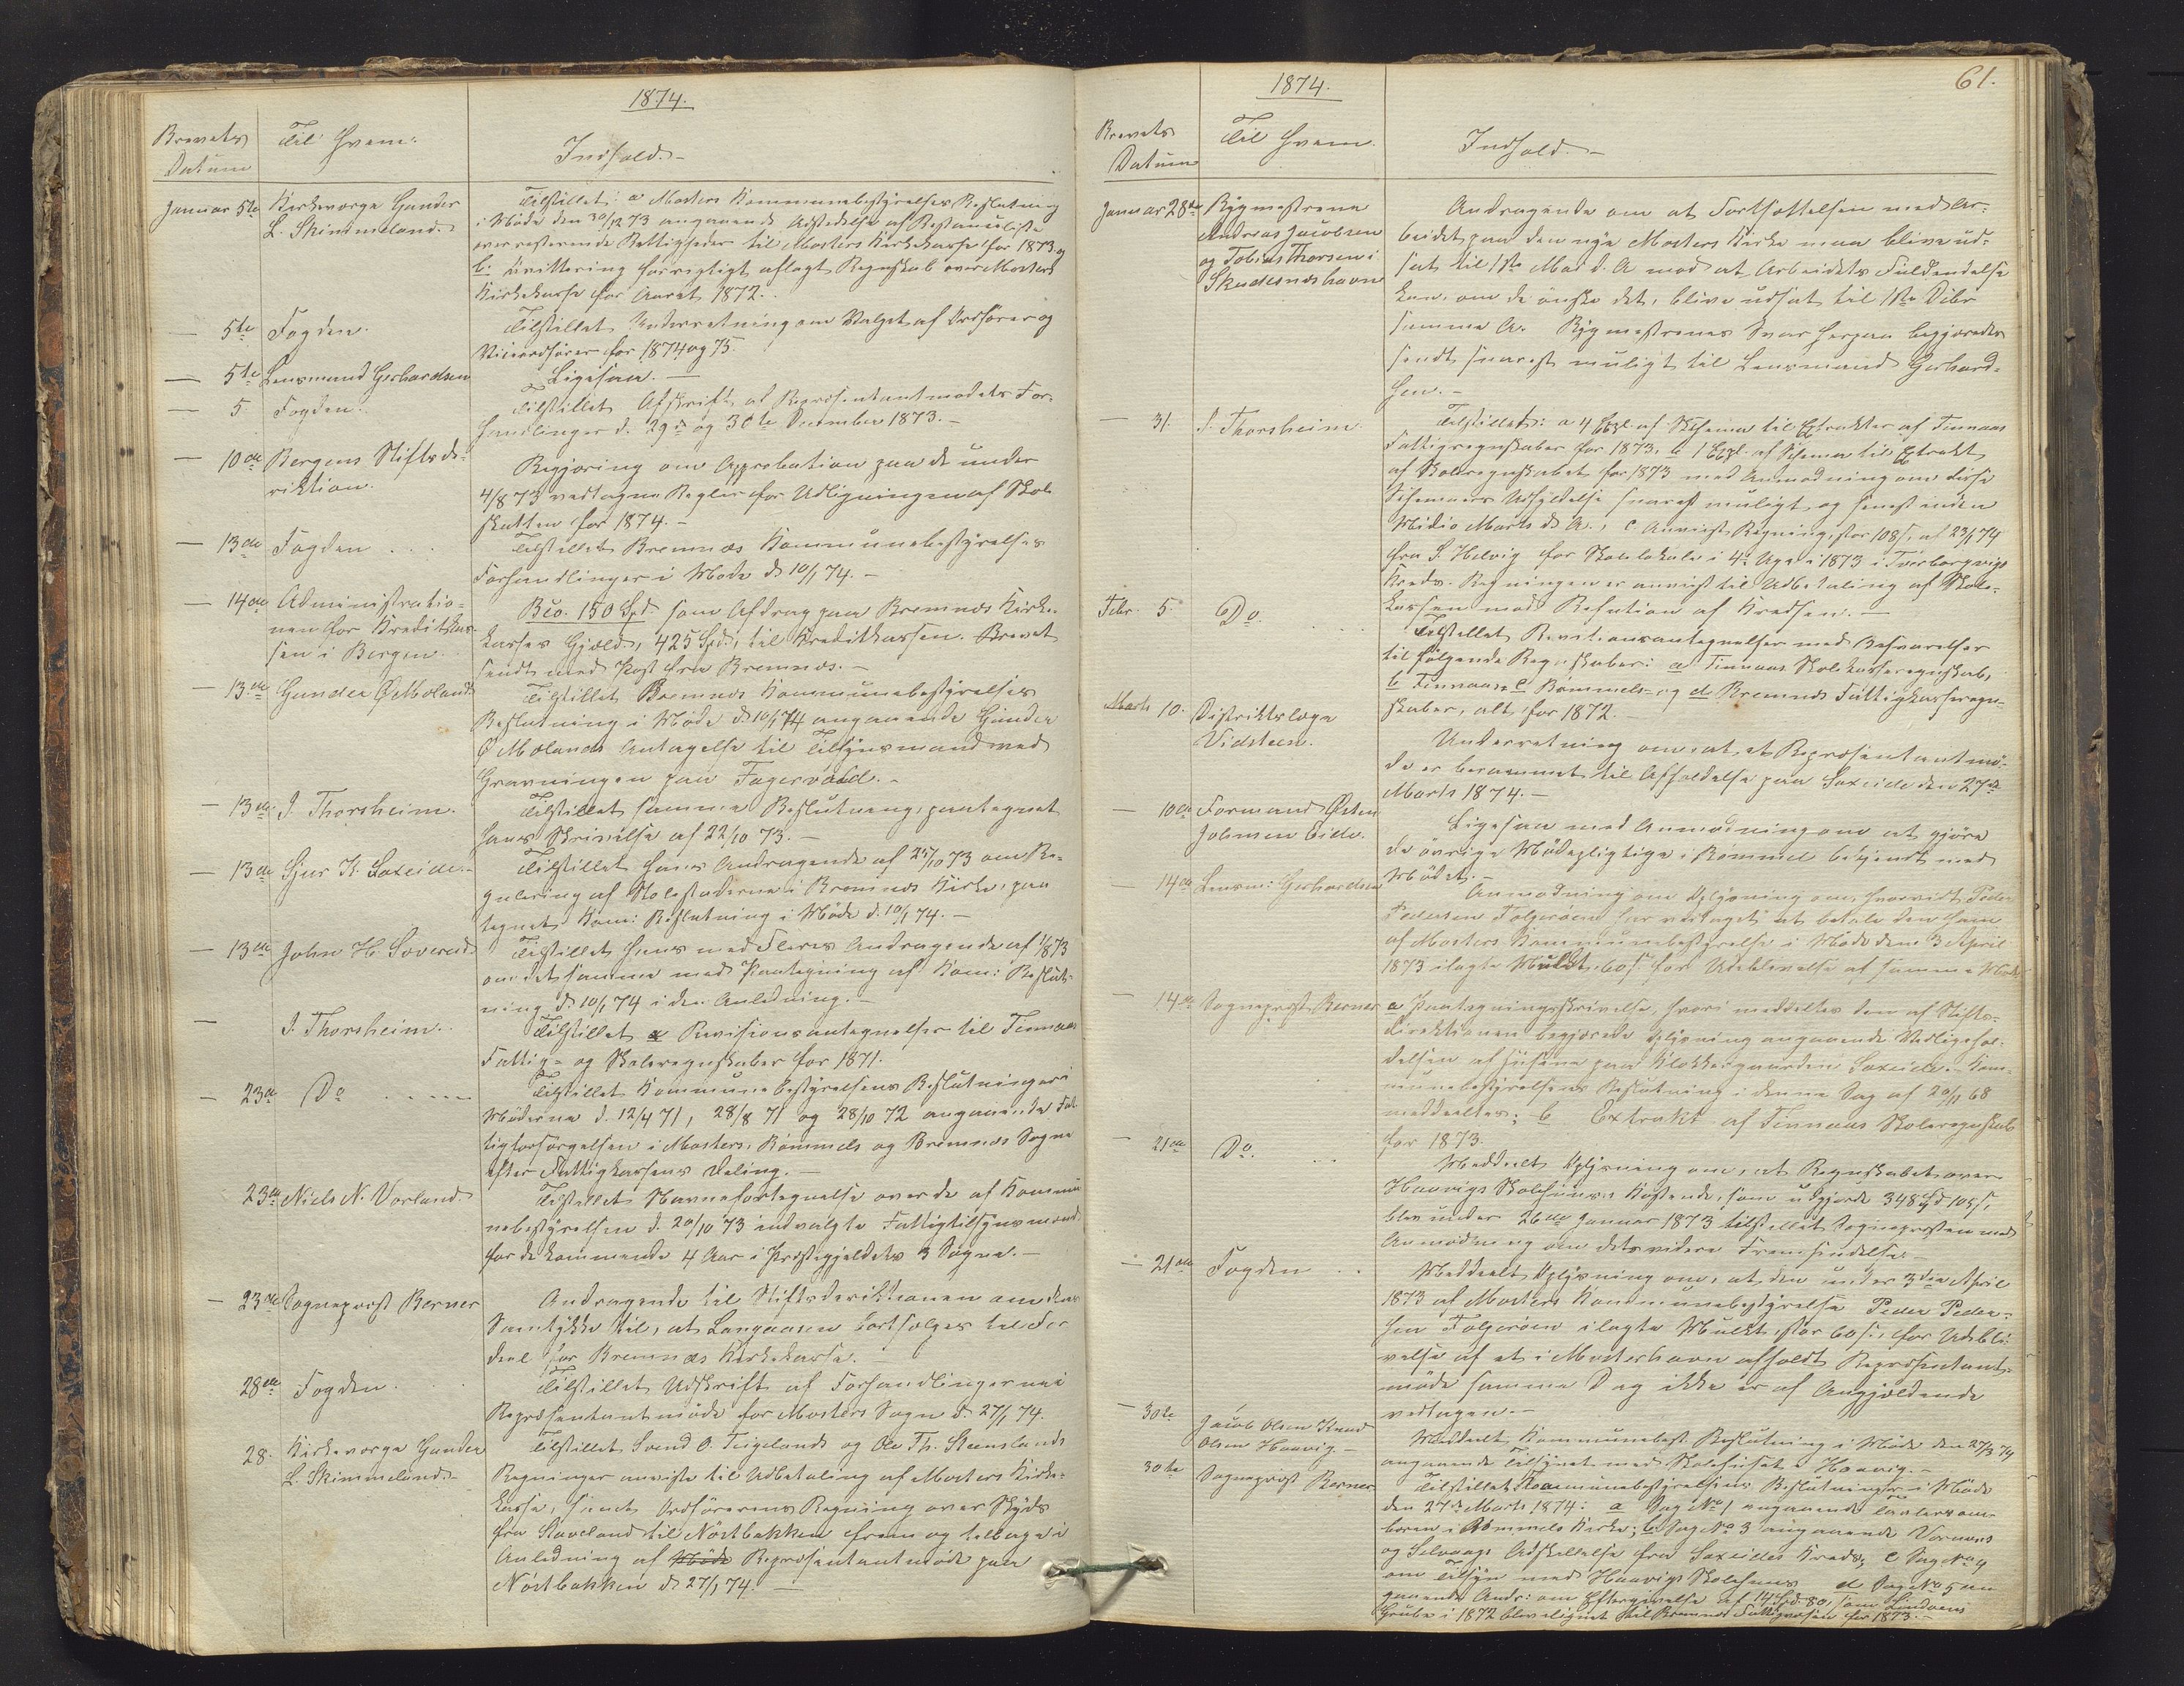 1874.
Brevets Datum
Til Hvem:
Indhold.-
Januar 5te Kirkeværge Gunder L. Skimmeland.
Tilstillet: a Mosters Kommunebestyrelses Beslutning
i Møde den 30/12 73 angaaende Udstedelse af Restanceliste
over resterende Rettigheder til Mosters Kirkekasse for 1873 og
b. Kvittering for rigtigt aflagt Regnskab over Mosters
Kirkekasse for Aaret 1872.
— 5te Fogden.
Tilstillet Underretning om Valget af Ordfører og
Viceordfører for 1874 og 75.
— 5te Lensmand Gerhardsen
Ligesaa. —
— 5 Fogden.
Tilstillet Afskrift af Repræsentantmødets For-
handlinger d. 29de og 30te December 1873. -
— 10de Bergens Stiftsdi-
rektion.
Begjæring om Approbation paa de under
4/8 73 vedtagne Regler for Udligningen af Skole
skatten for 1874. -
— 13de Fogden . . .
Tilstillet Bremnæs Kommunebestyrelses
Forhandlinger i Møde d. 10/1 74. -
— 14de Administratio-
nen for Kreditkas-
sen i Bergen.
Bco. 150 Spd. som Afdrag paa Bremnæs Kirke-
kasses Gjæld, 425 Spd., til Kreditkassen. Brevet
sendt med Post fra Bremnæs. -
— 13de Gunder Ø Mæland
Tilstillet Bremnæs Kommunebestyrelses
Beslutning i Møde d. 10/1 74 angaaende Gunder
Ø Mælands Antagelse til Tilsynsmand ved
Gravningen paa Fagervold. -
— 13de J. Thorsheim.
Tilstillet samme Beslutning, paategnet
hans Skrivelse af 22/10 73. -
— 13de Sjur K. Soxeide. -
Tilstillet hans Andragende af 25/10 73 om Re-
gulering af Stolestaderne i Bremnæs Kirke, paa
tegnet Kom: Beslutning i Møde d. 10/1 74. -
— 13de John H. Sovereid
Tilstillet hans med Fleres Andragende af 1/8 73
om det samme med Paategning af Kom: Beslut-
ning d. 10/1 74 i den Anledning. -
— J. Thorsheim.
Tilstillet a Revisionsantegnelser til Finnaas
Fattig- og Skoleregnskaber for 1871.
— 23de Do . . . . .
Tilstillet Kommunebestyrelsens Beslutninger i
Møderne d. 12/4 71, 28/8 71 og 28/10 72 angaaende Fat-
tigforsørgelsen i Mosters, Bømmels og Bremnæs Sogne
efter Fattigkassens Deling. -
23de Niels N. Vorland.
Tilstillet Navnefortegnelse over de af Kommu
nebestyrelsen d. 20/10 73 indvalgte Fattigtilsynsmænd
for de kommende 4 Aar i Præstegjældets 3 Sogne. -
— 23de Sogneprest Berner
Andragende til Stiftsdirektionen om dens
Samtykke til, at Langaasen bortsælges til For
deel for Bremnæs Kirkekasse.
28de Fogden.
Tilstillet Udskrift af Forhandlingerne i
Repræsentantmøde for Mosters Sogn d. 27/1 74.
28. Kirkeværge Gunder
L. Skimmeland.-
Tilstillet Svend O. Teigelands og Ole Th. Steenslands
Regninger anviste til Udbetaling af Mosters Kirke-
kasse, samt Ordførerens Regning over Skyds
fra Stavland til Nørtbakken frem og tilbage i
Anledning af Møde Repræsentantmøde paa
Nørtbakken d. 27/1 74. —
61.
1874.
Brevets Datum
Til Hvem.
Indhold. -
Januar 28de Bygmestrene
Andreas Jacobsen
og Tobias Thorsen i
Skudesneshavn
Andragende om at Fortsættelsen med Ar-
beidet paa den nye Mosters Kirke maa blive ud-
sat til 1ste Mai d. A mod at Arbeidets Fuldendelse
kan, om de ønske det, blive udsat til 1ste Decbr
samme A. Bygmestrenes Svar herpaa begjæredes
sendt snarest muligt til Lensmand Gerhard-
sen. -
— 31. J. Thorsheim.
Tilstillet: a 4 Expl. af Schema til Extrakter af Finnaas
Fattigregnskaber for 1873, b 1 Expl. af Schema til Extrakt
af Skoleregnskabet for 1873 med Anmodning om disse
Schemaers Udfyldelse snarest muligt og senest inden
Midio Marts d. A., c Anvist Regning, stor 108 s, af 23/1 74
fra S. Helvig for Skolelokale i 4 Uger i 1873 i Tverborgvigs
Kreds. Regningen er anvist til Udbetaling af Skole-
kassen mod Refution af Kredsen. -
Febr. 5. Do. . . . .
Tilstillet Revisionsantegnelser med Besvarelser
til følgende Regnskaber: a Finnaas Skolekasseregnskab,
b Finnaas, c Bømmels- og d Bremnæs Fattigkasseregn-
skaber, alt for 1872. -
Marts 10. Distriktslæge
Vidsteen.
Underretning om, at et Repræsentantmø-
de er berammet til Afholdelse paa Soxeide den 27de
Marts 1874. -
— 10de Formand Østen
Johnsen Eide.
Ligesaa med Anmodning om at gjøre
de øvrige Mødepligtige i Bømmel bekjendt med
Mødet. -
— 14de Lensm: Gerhardsen
Anmodning om Oplysning om hvorvidt Peder
Pedersen Folgerøen har vedtaget at betale den ham
af Mosters Kommunebestyrelse i Møde den 3 April
1873 ilagte Mulkt 60 s. for Udeblivelse af samme Møde
— 14de Sogneprest Berner
a Paategningsskrivelse, hvori meddeltes den af Stifts-
direktionen begjærede Oplysning angaaende Vedligehol-
delsen af Husene paa Klokkergaarden Soxeide. Kom-
munebestyrelsens Beslutning i denne Sag af 20/11 68
meddeeltes; b Extrakt af Finnaas Skoleregnskab
for 1873.
— 21de Do. . . .
Meddeelt Oplysning om, at Regnskabet over
Haavigs Skolehuses Kostende, som udgjorde 348 Spd 105 s,
blev under 26de Januar 1873 tilstillet Sognepresten med
Anmodning om dets videre Fremsendelse. -
— 21de Fogden . .
Meddeelt Oplysning om, at den under 3die April
1873 af Mosters Kommunebestyrelse Peder Peder-
sen Folgerøen ilagte Mulkt, stor 60 s., for Udebli-
velse af et i Mosterhavn afholdt Repræsentant-
møde samme Dag ikke er af Angjældende
vedtagen. -
— 30te Jacob Olsen Knud
Olsen Haavig. -
Meddeelt Kommunebest. Beslutning i Møde den 27/3 74
angaaende Tilsynet med Skolehuset i Haavig. -
30te Sogneprest Berner
Tilstillet Kommunebestyrelsens Beslutninger i Møde
den 27de Marts 1874: a Sag No 1 angaaende
i Bømmels Kirke; b Sag No 3 angaaende Vornæs
og Selvaags Adskillelse fra Soxeides Kreds; c Sag No 4
om Tilsyn med Haavigs Skolehuus d Sag No 5 an
gaaende Andr: om Eftergivelse af 14 Spd 80, som Lindøens
Grube i 1872 blev ilignet til Bremnæs Fattigvæsen for 1873. -